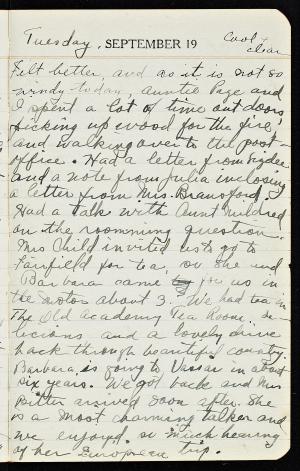 Tuesday, SEPTEMBER 19 Cool + clear
Felt better, and as it is not so
windy today, Auntie Page and
I spent a lot of time outdoors
picking up wood for the fire,
and walking over to the post-
office. Had a letter from
and a note from Julia inclosing
a letter from Mrs. Bransford.
Had a talk with Aunt Mildred
on the roomming question.
Mrs Child invited us to go to
Fairfield for tea, so she and
Barbara came for us in
the motor about 3. We had tea in
The Old Academy Tea Room, de-
licious, and a lovely drive
back through beautiful country.
Barbara is going to Vassar in about
six years. We got back and Mrs
Ritter arrived soon after. She
is a most charming talker and
we enjoyed so much hearing
of her European trip.